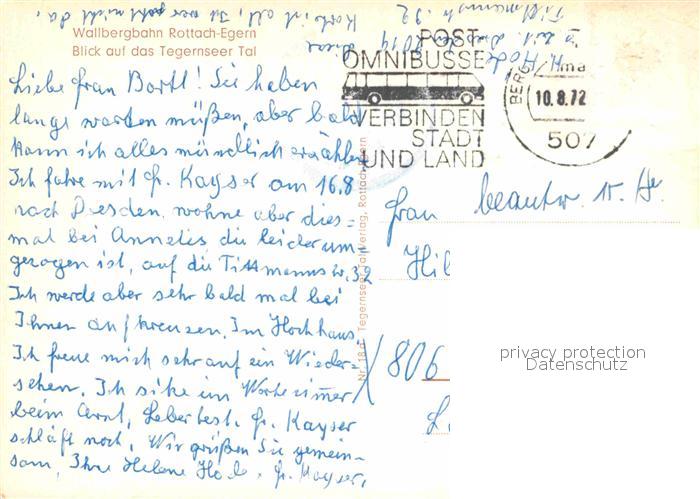 Wallbergbahn Rottach-Egern
Blick auf das Tegernseer Tal
Liebe Frau Bartl! Sie haben
lange warten müßen, aber bald
kann ich alles mündlich erzählen
Ich fahre mit Fr. Kayser am 16.8
nach Dresden, wohne aber dies=
mal bei Annelis, die leider um=
gezogen ist, auf die Tittmannstr. 32
Ich werde aber sehr bald mal bei
Ihnen aufkreuzen. Im Hochhaus.
Ich freue mich sehr auf ein Wieder=
sehen. Ich sitze im Wartezimmer
beim Arzt, Leber test. Fr. Kayser
schläft noch. Wir grüßen Sie gemein=
sam, Ihre Helene Fr. Kayser.
Karte ist alt, Ich war nicht da.
Tittmannstr. 32
8019
POST-
OMNIBUSSE
VERBINDEN
STADT
UND LAND
BERG
10.8.72
507
Tegernseer Tal Verlag, Rottach-Egern
beantw.
Frau
Hil
806
privacy protection
Datenschutz